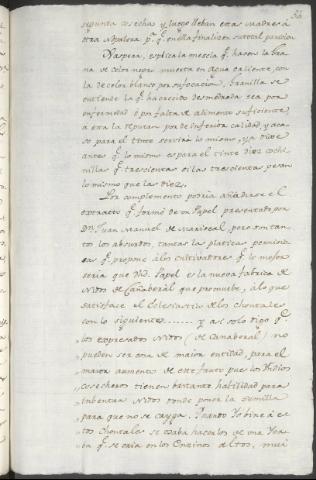 36
segunda cosecha, y luego lleban esta madre á
otra Nopalera p.ª q.e en ella finalize su total paricion
Naspera, esplica la mescla q.e hacen la
na de color negro muerta en agua caliente, con
la de color blanco por sufocacion, granilla se
entiende la q.e ha crecido desmedrada sea por
enfermedad ó por falta de alimento suficiente,
á esta la reputan por de inferior calidad, y aca
so para el tinte servirá lo mismo, y
antes q.e lo mismo es para el tinte diez cochi
nillas q.e trescientas si las trescientas pesan
lo mismo que las diez.
Por complemento podria añadirse el
extracto q.e formé de un Papel presentado por
Dn. Juan Manuel de Mariscal, pero son tan
tos los absurdos, tantas las platicas pernicio
sas q.e propone á los cultivadores q.e lo mejor
seria que dho. Papel es la nueva fabrica de
Nidos de Cañaberal que promuebe, á lo que
satisface el Eclesiastico de los chontales
con lo siguiente ....... y asi solo digo q.e
los expresados Nidos (de Cañaberal) no
pueden ser cosa de maior entidad, para el
maior aumento de este fruto pues los Indios
cosecheros tienen bastante habilidad para
inbentar Nidos donde poner la semilla
para que no se cayga. Quando Yo bine á es
tos Chontales se usaba hacerlos de una Yer
ba q.e se caia en los Encinos altos, mui